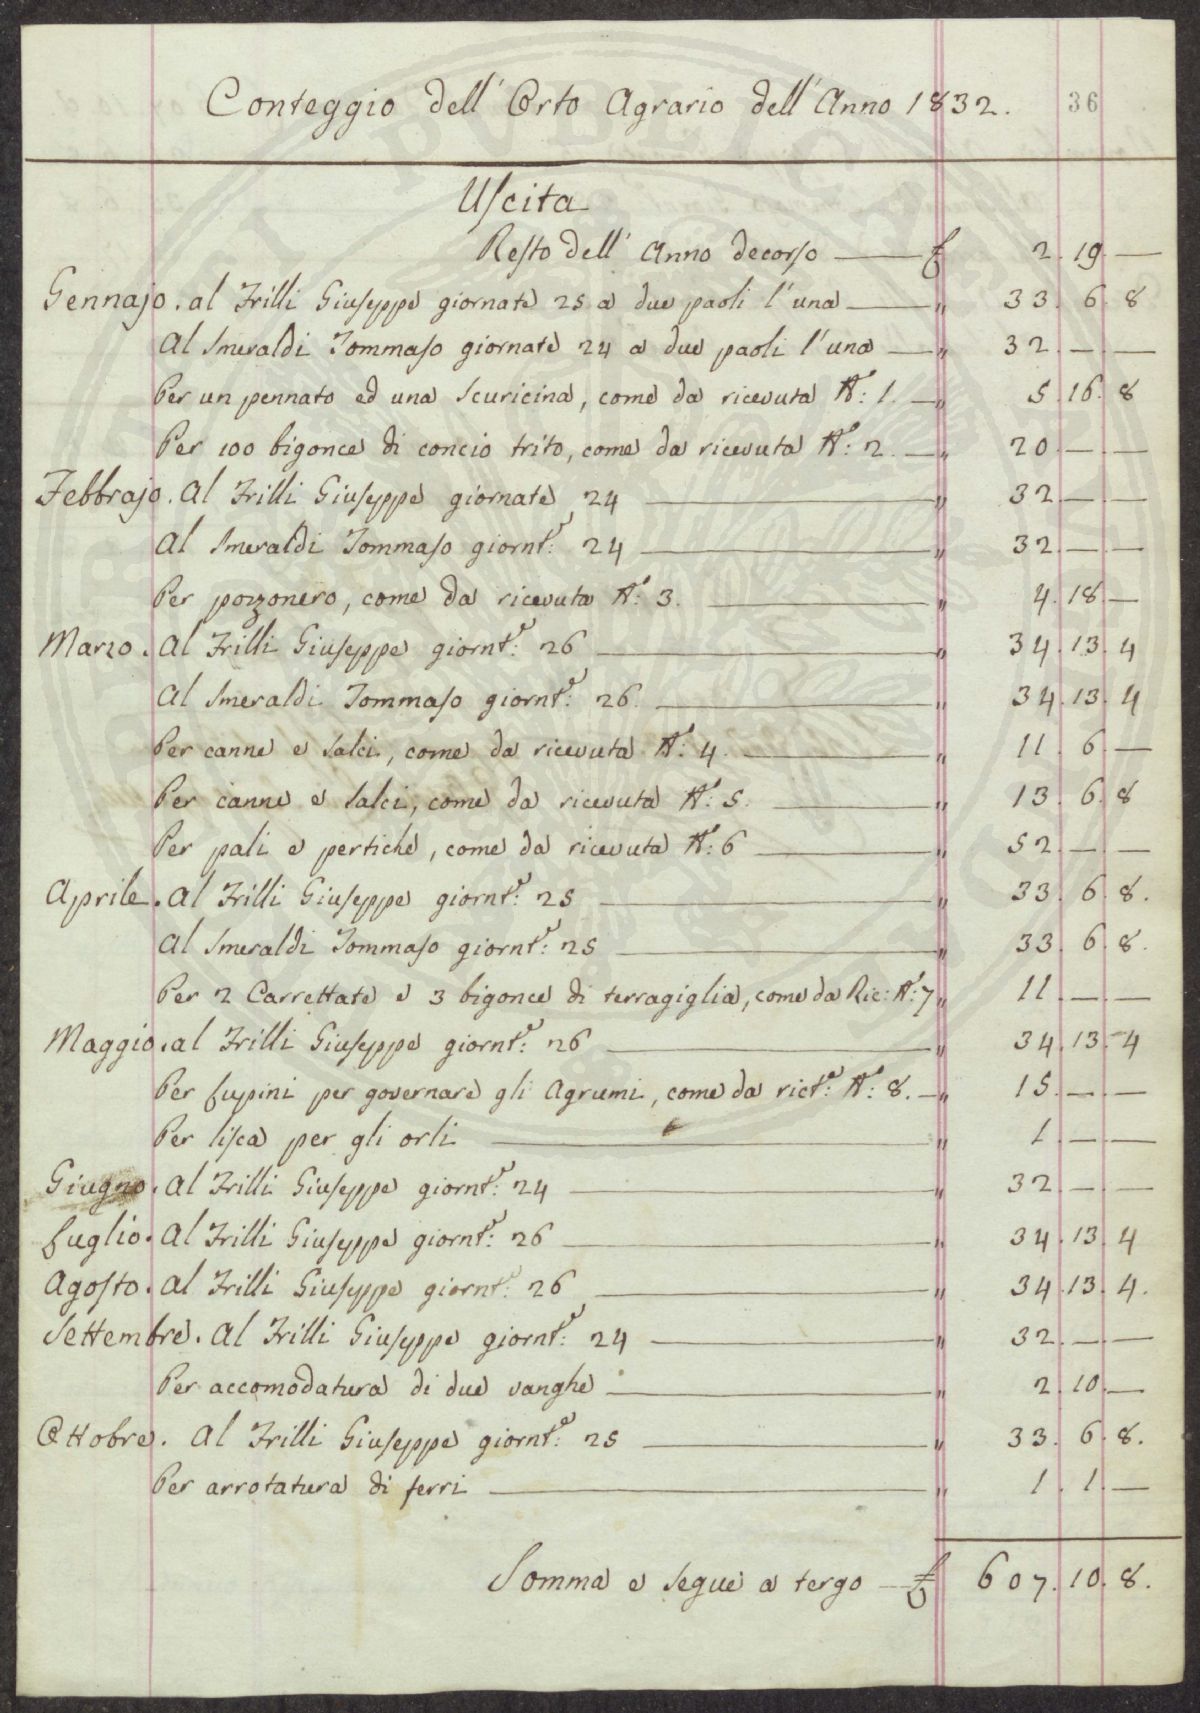 Conteggio dell' Orto Agrario dell' Anno 1832. 36
Uscita
Resto dell' Anno decorso — £ 2. 19. —
Gennajo. al Frilli Giuseppe giornate 25 a due paoli l'una — " 33. 6. 8
Al Smeraldi Tommaso giornate 24 a due paoli l'una — " 32. — . —
Per un pennato ed una scuricina, come da ricevuta N.º: 1. — " 5. 16. 8
Per 100 bigonce di concio trito, come da ricevuta N.º: 2. — " 20. — . —
Febbrajo. Al Frilli Giuseppe giornate 24 — " 32. — . —
Al Smeraldi Tommaso giornt.e: 24 — " 32. — . —
Per pozzonero, come da ricevuta N.º: 3. — " 4. 18. —
Marzo. Al Frilli Giuseppe giornt.e: 26 — " 34. 13. 4
Al Smeraldi Tommaso giornt.e: 26 — " 34. 13. 4
Per canne e salci, come da ricevuta N.º: 4. — " 11. 6. —
Per canne e salci, come da ricevuta N.º: 5. — " 13. 6. 8
Per pali e pertiche, come da ricevuta N.º: 6 — " 52. — . —
Aprile. Al Frilli Giuseppe giornt.e: 25 — " 33. 6. 8.
Al Smeraldi Tommaso giornt.e: 25 — " 33. 6. 8.
Per 2 Carrettate e 3 bigonce di terragiglia, come da Ric: N.º: 7 " 11. — . —
Maggio. al Frilli Giuseppe giornt.e: 26 — " 34. 13. 4
Per Lupini per governare gli Agrumi, come da rict.a: N.º: 8. — " 15. — . —
Per lisca per gli orli — " 1. — . —
Giugno. Al Frilli Giuseppe giornt.e: 24 — " 32. — . —
Luglio. Al Frilli Giuseppe giornt.e: 26 — " 34. 13. 4
Agosto. Al Frilli Giuseppe giornt.e: 26 — " 34. 13. 4.
Settembre. Al Frilli Giuseppe giornt.e: 24 — " 32. — . —
Per accomodatura di due vanghe — " 2. 10. —
Ottobre. Al Frilli Giuseppe giornt.e: 25 — " 33. 6. 8.
Per arrotatura di ferri — " 1. 1. —
Somma e segue a tergo — £ 607. 10. 8.